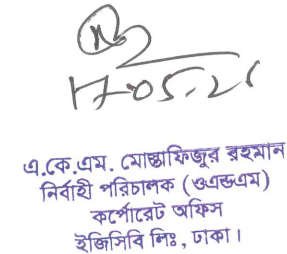 17.05.21
এ.কে.এম. মোস্তাফিজুর রহমান
নির্বাহী পরিচালক (ওএন্ডএম)
কর্পোরেট অফিস
ইজিসিবি লিঃ, ঢাকা।